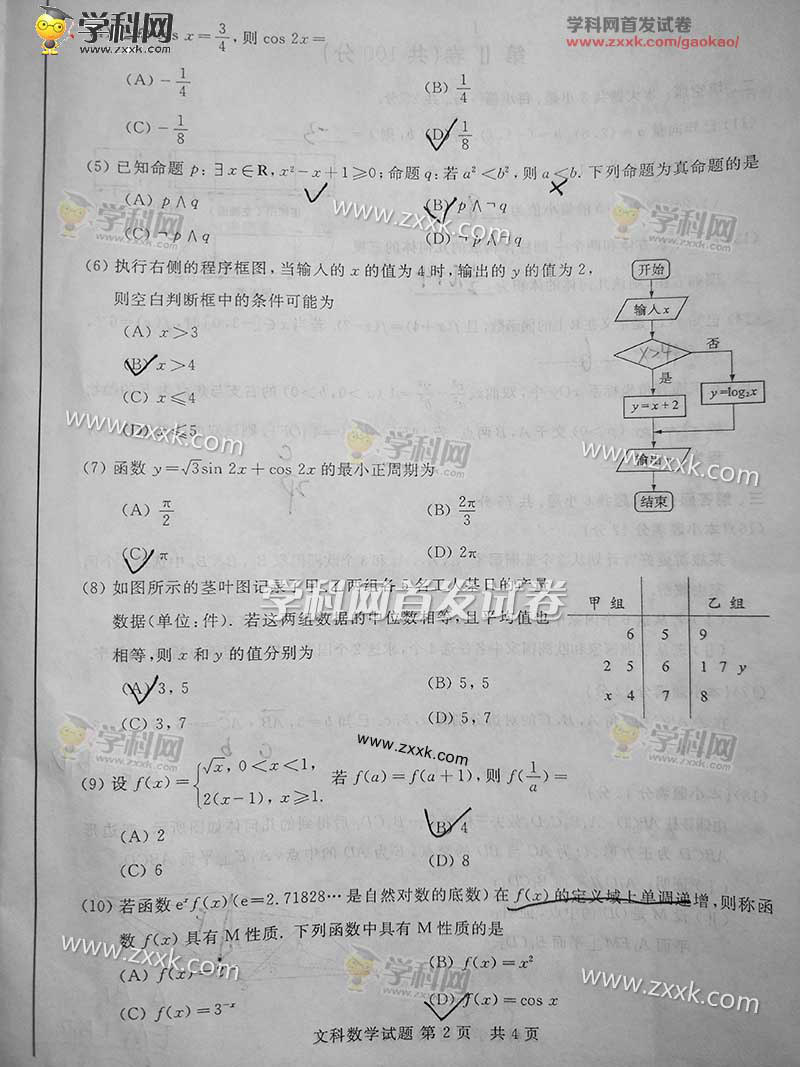 学科网
www.zxxk.com
学科网首发试卷
www.zxxk.com/gaokao/
x=3/4, 则 cos 2x=
(A) -1/4
(B) 1/4
(C) -1/8
(D) 1/8
(5) 已知命题 p: ∃x∈R, x²-x+1≥0; 命题 q: 若 a²<b², 则 a<b. 下列命题为真命题的是
(A) p∧q
(B) p∧¬q
(C) ¬p∧q
(D) ¬p∧¬q
(6) 执行右侧的程序框图, 当输入的 x 的值为 4 时, 输出的 y 的值为 2,
则空白判断框中的条件可能为
(A) x>3
(B) x>4
(C) x≤4
(D) x≤5
开始
输入 x
x>4
否
是
y=x+2
y=log₂x
输出 y
结束
(7) 函数 y=√3sin 2x+cos 2x 的最小正周期为
(A) π/2
(B) 2π/3
(C) π
(D) 2π
(8) 如图所示的茎叶图记录了甲、乙两组各 5 名工人某日的产量
数据(单位:件). 若这两组数据的中位数相等, 且平均值也
相等, 则 x 和 y 的值分别为
(A) 3, 5
(B) 5, 5
(C) 3, 7
(D) 5, 7
甲组 乙组
6 5 9
2 5 6 1 7 y
x 4 7 8
(9) 设 f(x)={√x, 0<x<1,
2(x-1), x≥1.
若 f(a)=f(a+1), 则 f(1/a)=
(A) 2
(B) 4
(C) 6
(D) 8
(10) 若函数 eˣf(x)(e=2.71828…是自然对数的底数)在 f(x) 的定义域上单调递增, 则称函
数 f(x) 具有 M 性质. 下列函数中具有 M 性质的是
(A) f(x)=
(B) f(x)=x²
(C) f(x)=3⁻ˣ
(D) f(x)=cos x
文科数学试题 第 2 页 共 4 页